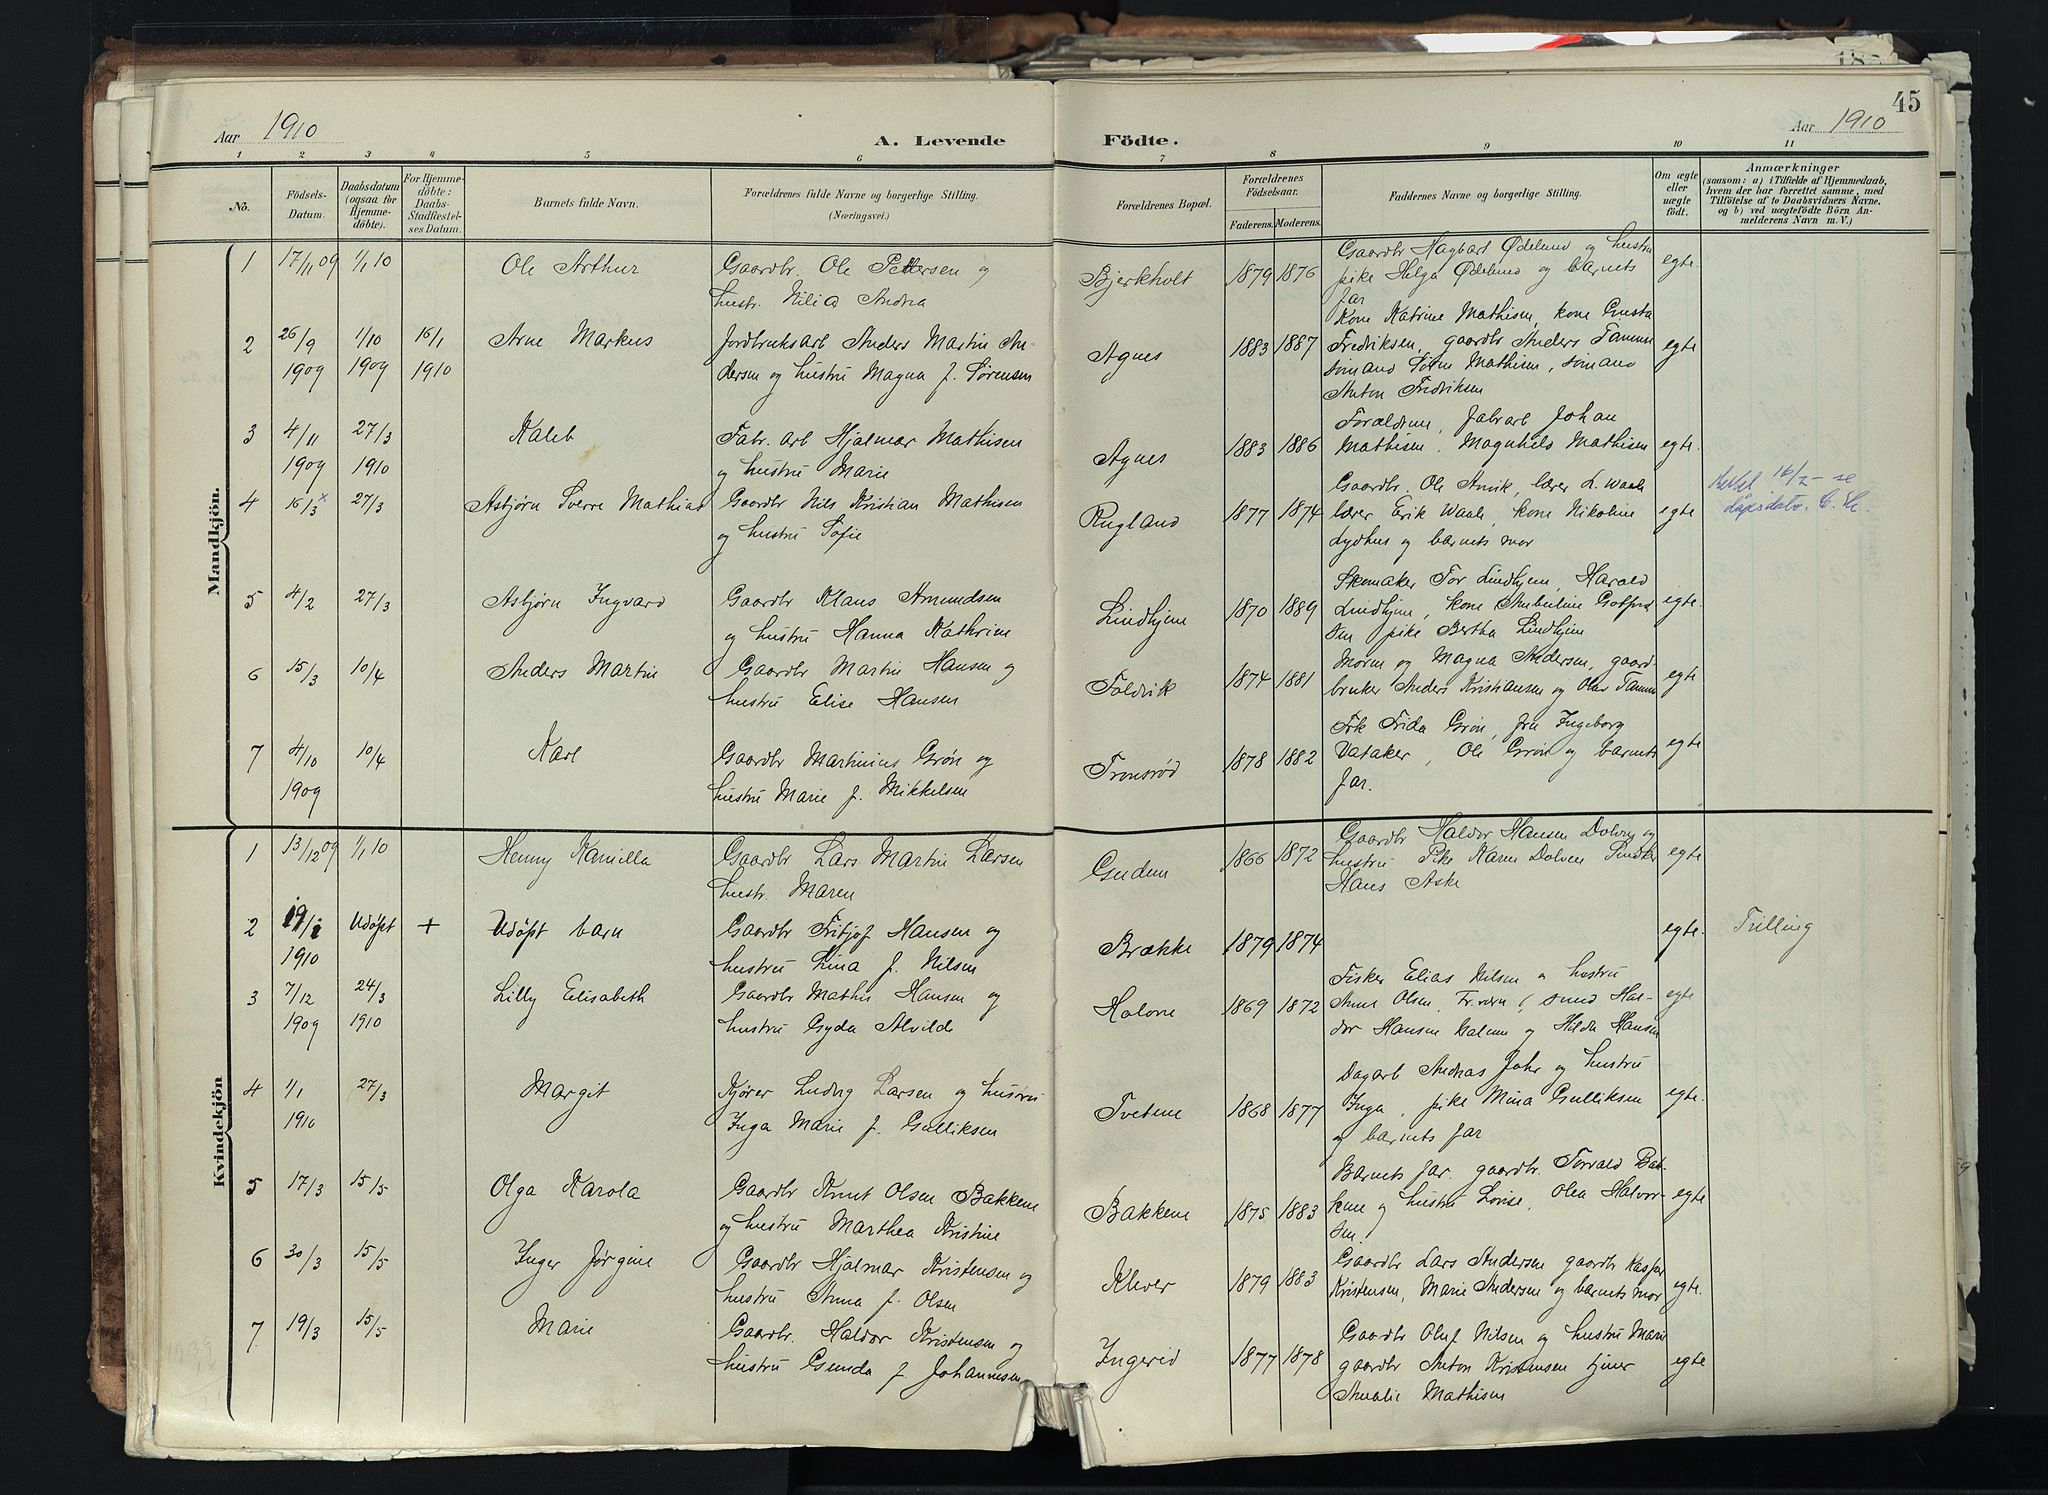 45
Aar 1910
A. Levende Födte.
Aar 1910
1 2 3 4 5 6 7 8 9 10 11
No.
Födsels-
Datum.
Daabsdatum
(ogsaa for
Hjemme-
döbte).
For Hjemme-
döbte:
Daabs-
Stadfæstel-
ses Datum.
Barnets fulde Navn.
Forældrenes fulde Navne og borgerlige Stilling.
(Næringsvei.)
Forældrenes Bopæl.
Forældrenes
Födselsaar.
Faderens. Moderens.
Faddernes Navne og borgerlige Stilling.
Om ægte
eller
uægte
födt.
Anmærkninger
(saasom: a) i Tilfælde af Hjemmedaab,
hvem der har forrettet samme, med
Tilföielse af to Daabsvidners Navne,
og b) ved uægtefödte Börn An-
melderens Navn m. V.)
Mandkjön.
1 17/11 09 1/1 10 Ole Arthur Gaardbr. Ole Pettersen og
hustr. Nilia Andrea
Bjerkholt 1879 1876
Gaardbr Hagbart Ødelund og hustru
pike Helga Ødelund og barnets
far
egte.
2 26/9 1/10 16/1 Arne Markus Jordbruksarb Anders Martin An-
1909 1909 1910 dersen og hustru Magna f. Sørensen
Agnes 1883 1887
Kone Katrine Mathisen, kone Gusta
Fredriksen, gaardbr Anders Tammen
sømand Søren Mathisen, sømand
Anton Fredriksen
egte
3 4/11 27/3 Kaleb Fabr. arb Hjalmar Mathisen
1909 1910 og hustru Marie
Agnes 1883 1886
Forældrene, Fabrarb Johan
Mathisen, Magnhild Mathisen
egte.
4 16/3 x 27/3 Asbjørn Sverre Mathias Gaardbr Nils Kristian Mathisen
og hustru Sofie
Rugland 1877 1874
Gaardbr. Ole Amik, lærer L. Waale
lærer Erik Waale, kone Nikoline
Lydhus og barnets mor
egte
16/2 - se
dåpsdato.
5 4/2 27/3 Asbjørn Ingvard Gaardbr Klaus Amundsen
og hustru Hanna Kathrine
Lindhjem 1870 1889
Skomaker Tor Lindhjem, Harald
Lindhjem, kone Anbuline Gotfred
sen pike Bertha Lindhjem
egte.
6 15/3 10/4 Anders Martin Gaardbr Martin Hansen og
hustru Elise Hansen
Foldvik 1874 1881
Moren og Magna Andersen, gaard-
bruker Anders Kristiansen og Olav Tammen
egte
7 4/10 10/4 Karl Gaardbr Martinius Grøn og
1909 hustru Marie f. Mikkelsen
Tronsrød 1878 1882
Frk Frida Grøn, fru Ingeborg
Vataker, Ole Grøn og barnets
far.
egte
Kvindekjön
1 13/12 09 1/1 10 Henny Kamilla Gaardbr Lars Martin Larsen
hustr. Maren
Gudem 1866 1872
Gaardbr Haldor Hansen Dolven og
hustru Pike Karen Dolven Smedker
Hans Aske
egte
2 19/1 Udøpt + Udøpt barn Gaardbr Fritjof Hansen og
1910 hustru Lina f. Nilsen
Brække 1879 1874 egte. Trilling
3 7/12 24/3 Lilly Elisabeth Gaardbr Mathis Hansen og
1909 1910 hustru Gyda Alvilde
Halone 1869 1872
Fisker Elias Nilsen og hustru
Anne Olsen, smed Hal-
dor Hansen og Hilda Hansen
egte
4 1/1 27/3 Margit Kjører Ludvig Larsen og hustru
1910 Inga Marie f. Gulliksen
Tvetene 1868 1877
Dagarb Andreas Jahr og hustru
Inga, pike Mina Gulliksen
og barnets far
egte.
5 17/3 15/5 Olga Karola Gaardbr Knut Olsen Bakkene
og hustru Marthea Kristine
Bakkene 1875 1883
Barnets far. gaardbr. Torvald Bak-
kene og hustru Lovise, Olea Halvor-
sen.
egte
6 30/3 15/5 Inger Jørgine Gaardbr Hjalmar Kristensen og
hustru Anna f. Olsen
Klever 1879 1883
Gaardbr Lars Andersen gaardbr Kaspar
Kristensen, Marie Andersen og barnets mor
egte.
7 19/3 15/5 Marie Gaardbr. Haldor Kristensen og
hustru Gunda f Johannesen
Ingerid 1877 1878
Gaardbr Oluf Nilsen og hustru Marie
gaardbr Anton Kristensen tjener
Amalie Mathisen
egte